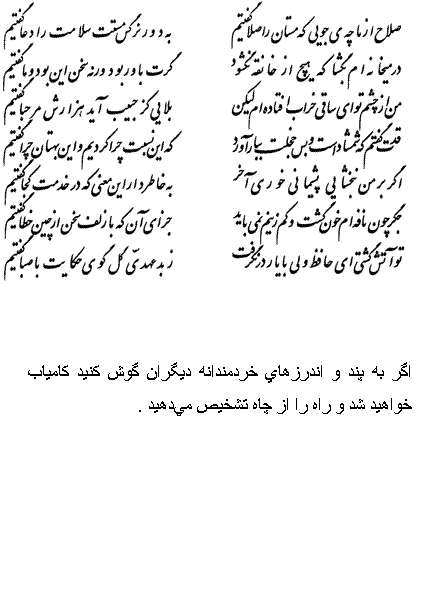 صلاح از ما چه می جویی که مستان را صلا گفتیم به دور نرگس مستت سلامت را دعا گفتیم
در میخانه ام بگشا که هیچ از خانقه نگشود گرت باور بود ورنه سخن این بود و ما گفتیم
من از چشم تو ای ساقی خراب افتاده ام لیکن بلایی کز حبیب آید هزارش مرحبا گفتیم
قدت گفتم که شمشاد است و بس خجلت ببار آورد که این نسبت چرا کردیم و این بهتان چرا گفتیم
اگر بر من نبخشایی پشیمانی خوری آخر به خاطر دار این معنی که در خدمت کجا گفتیم
جگر چون نافه ام خون گشت و کم زینم نمی باید جزای آن که با زلفت سخن از چین خطا گفتیم
تو آتش گشتی ای حافظ ولی با یار در نگرفت ز بد عهدی گل گویی حکایت با صبا گفتیم
اگر به پند و اندرزهاي خردمندانه ديگران گوش كنيد كامياب
خواهيد شد و راه را از چاه تشخيص مي‌دهيد .